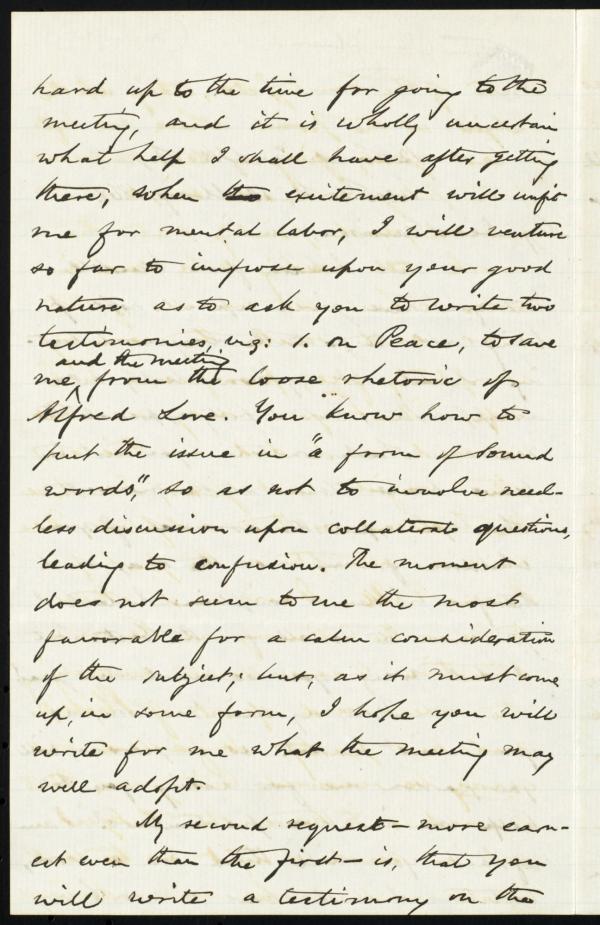 hard up to the time for going to the
meeting, and it is wholly uncertain
what help I shall have after getting
there, when the excitement will unfit
me for mental labor, I will venture
so far to impose upon your good
nature as to ask you to write two
testimonies, viz: 1. on Peace, to save
and the meeting
me, from the loose rhetoric of
Alfred Love. You know how to
put the issue in "a form of sound
words," so as not to involve need-
less discussion upon collateral questions,
leading to confusion. The moment
does not seem to me the most
favorable for a calm consideration
of the subject; but, as it must come
up, in some form, I hope you will
write for me what the meeting may
well adopt.
My second request—more earn-
est even than the first—is, that you
will write a testimony on the